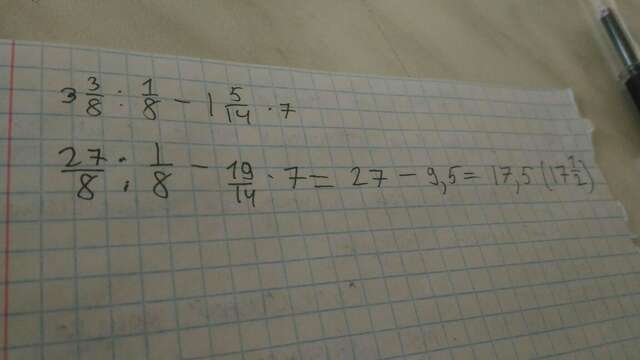 3 3/8 : 1/8 - 1 5/14 · 7
27/8 : 1/8 - 19/14 · 7 = 27 - 9,5 = 17,5 (17 1/2)